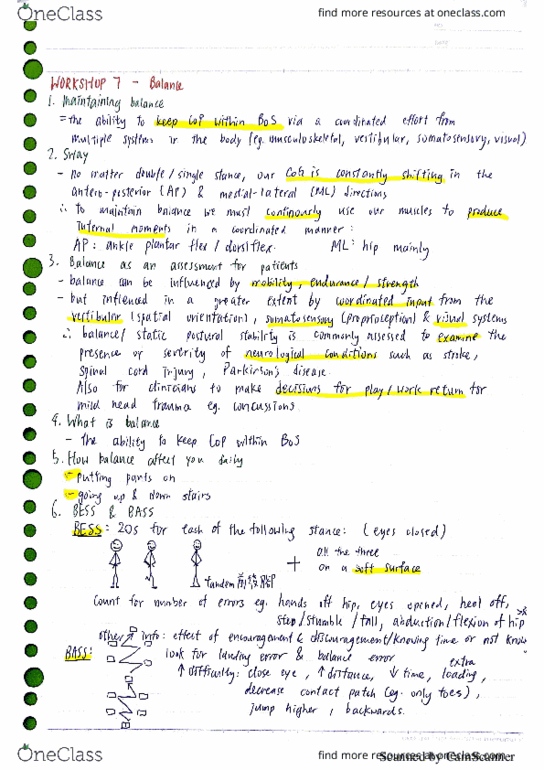 OneClass
find more resources at oneclass.com
WORKSHOP 7 - Balance
1. Maintaining balance
= the ability to keep CoP within BoS via a coordinated effort from
multiple systems in the body (eg. musculoskeletal, vestibular, somatosensory, visual)
2. Sway
- no matter double/single stance, our CoG is constantly shifting in the
antero-posterior (AP) & medial-lateral (ML) directions
∴ to maintain balance we must continously use our muscles to produce
internal moments in a coordinated manner:
AP: ankle plantar flex / dorsiflex. ML: hip mainly
3. Balance as an assessment for patients
- balance can be influenced by mobility, endurance/strength
- but inflenced in a greater extent by coordinated input from the
vestibular (spatial orientation), somatosensory (proprioception) & visual systems
∴ balance/static postural stability is commonly assessed to examine the
presence or severity of neurological conditions such as stroke,
spinal cord injury, Parkinson's disease.
Also for clinicians to make decisions for play/work return for
mild head trauma eg. concussions
4. What is balance
- the ability to keep CoP within BoS
5. How balance affect you daily
- putting pants on
- going up & down stairs
6. BESS & BASS
BESS: 20s for each of the following stance: (eyes closed)
+ all the three
on a soft surface
tandem
count for number of errors eg. hands off hip, eyes opened, heel off,
step/stumble/fall, abduction/flexion of hip
other info: effect of encouragement & discouragement/knowing time or not know
BASS: look for landing error & balance error
↑ difficulty: close eye, ↑ distance, ↓ time, extra loading,
decrease contact patch (eg. only toes),
jump higher, backwards.
OneClass
find more resources at oneclass.com
Scanned by CamScanner